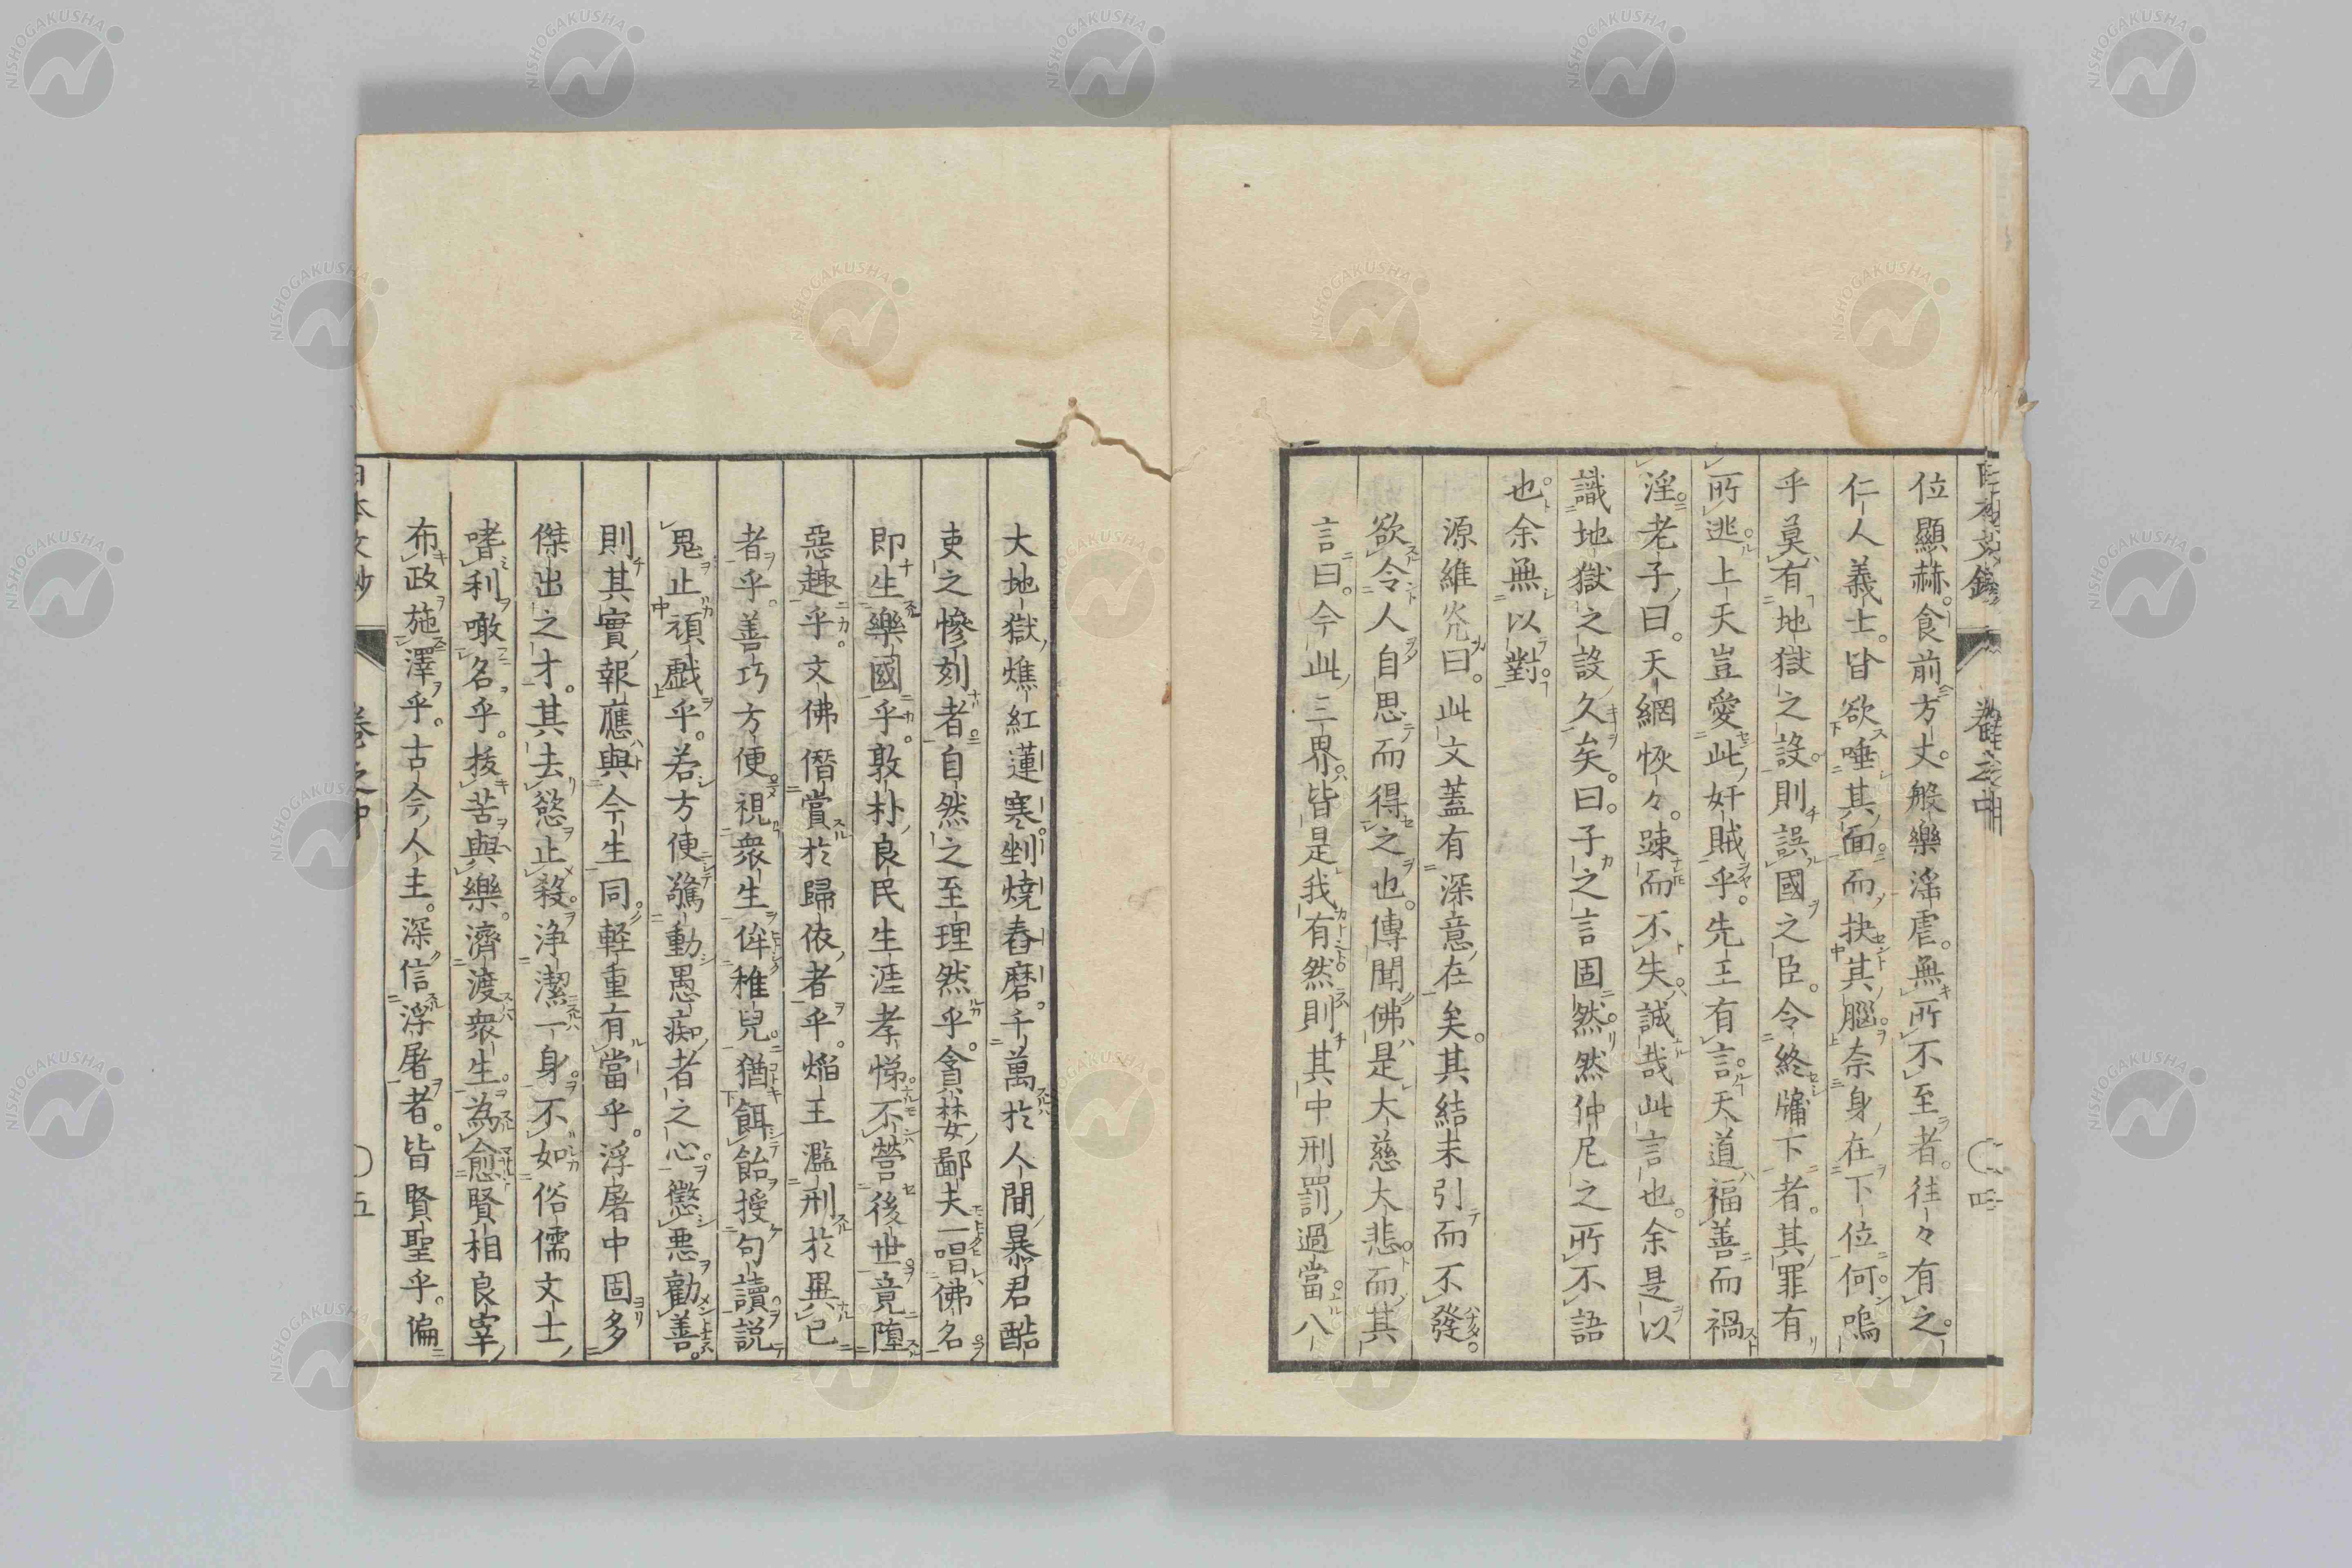 位顯赫。食前方丈。般樂滛虐。無所不至者。往々有之。
仁人義士。皆欲唾其面而抉其腦。奈身在下位何。嗚
乎莫有地獄之設。則誤國之臣。令終牖下者。其罪有
所逃。上天豈愛此奸賊乎。先王有言。天道福善而禍
淫。老子曰。天網恢々。踈而不失。誠哉此言也。余是以
識地獄之設久矣。曰。子之言固然。然仲尼之所不語
也。余無以對。
源維㷀曰。此文蓋有深意在矣。其結末引而不發。
欲令人自思而得之也。傳聞佛是大慈大悲。而其
言曰。今此三界。皆是我有。然則其中刑罰過當。八
大地獄。燋紅蓮寒。剉燒舂磨。千萬於人間暴君酷
吏之慘刻者。自然之至理然乎。貪婪鄙夫一唱佛名
即生樂國乎。敦朴良民生涯孝悌。不營後世。竟墮
惡趣乎。文佛僭賞於歸依者乎。焰王濫刑於異己
者乎。善巧方便。視衆生侔稚兒。猶餌飴授句讀説
鬼止頑戲乎。若方便驚動愚痴者之心。懲悪勸善。
則其實報應與今生同。輕重有當乎。浮屠中固多
傑出之才。其去慾止殺。浄潔一身。不如俗儒文士
嗜利噉名乎。拔苦與樂。濟渡衆生。為愈賢相良宰
布政施澤乎。古今人主。深信浮屠者。皆賢聖乎。偏
日本文鈔 卷之中 〇四
日本文鈔 卷之中 〇五
NISHOGAKUSHA